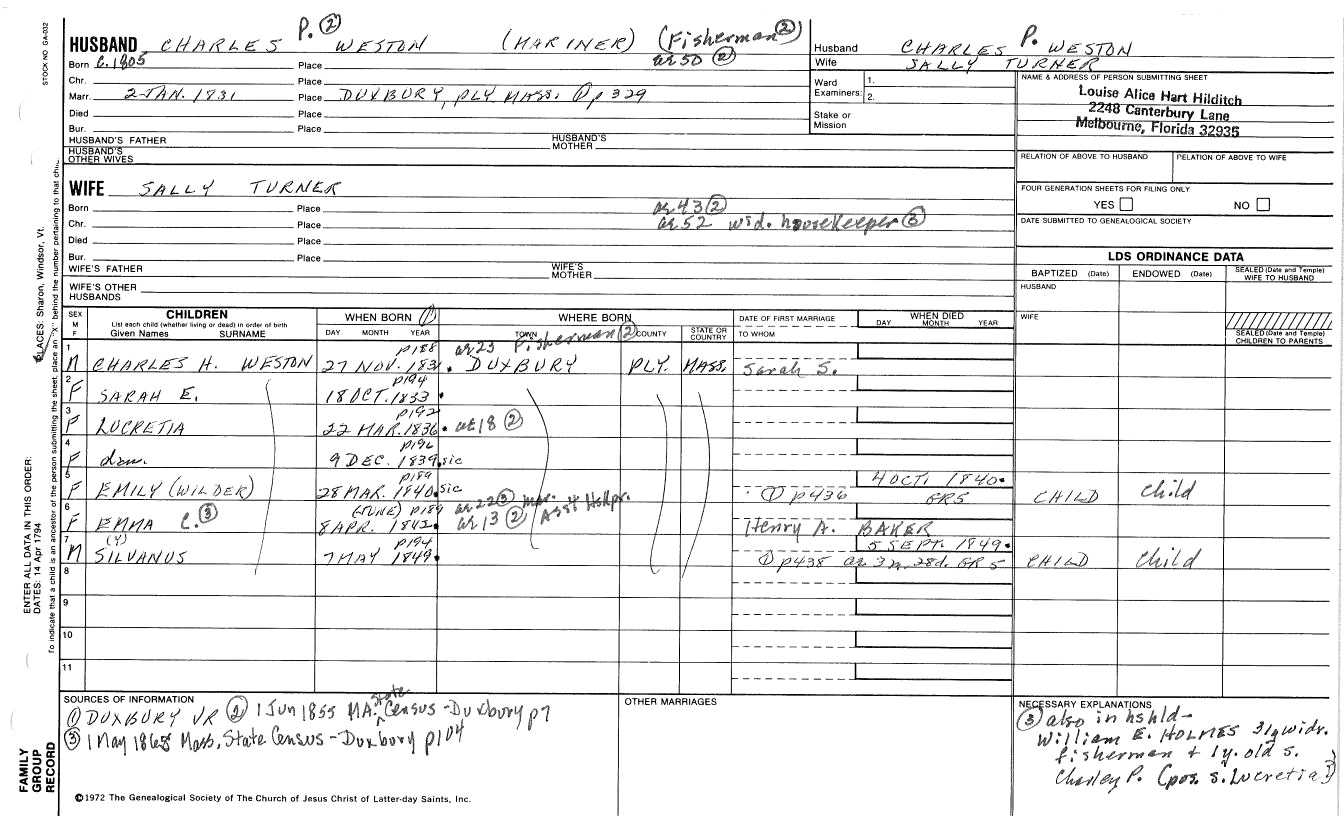 STOCK NO. GA-032
HUSBAND CHARLES P. ② WESTON (MARINER) (Fisherman ②)
Born C.1805 Place ae 50 ②
Chr. Place
Marr. 2 JAN. 1831 Place DUXBURY, PLY MASS. ① p 329
Died Place
Bur. Place
HUSBAND'S FATHER HUSBAND'S MOTHER
HUSBAND'S OTHER WIVES
Husband CHARLES P. WESTON
Wife SALLY TURNER
Ward Examiners: 1.
2.
Stake or Mission
NAME & ADDRESS OF PERSON SUBMITTING SHEET
Louise Alice Hart Hilditch
2248 Canterbury Lane
Melbourne, Florida 32935
RELATION OF ABOVE TO HUSBAND RELATION OF ABOVE TO WIFE
FOUR GENERATION SHEETS FOR FILING ONLY
YES NO
DATE SUBMITTED TO GENEALOGICAL SOCIETY
WIFE SALLY TURNER
Born Place ae 43 ②
Chr. Place ae 52 wid. housekeeper ③
Died Place
Bur. Place
WIFE'S FATHER WIFE'S MOTHER
WIFE'S OTHER HUSBANDS
LDS ORDINANCE DATA
BAPTIZED (Date) ENDOWED (Date) SEALED (Date and Temple) WIFE TO HUSBAND
HUSBAND
WIFE
SEALED (Date and Temple) CHILDREN TO PARENTS
SEX M F
CHILDREN
List each child (whether living or dead) in order of birth
Given Names SURNAME
WHEN BORN ①
DAY MONTH YEAR
WHERE BORN
TOWN COUNTY STATE OR COUNTRY
DATE OF FIRST MARRIAGE
TO WHOM
WHEN DIED
DAY MONTH YEAR
p188 ae 23 Fisherman ②
1 M CHARLES H. WESTON 27 NOV. 1831. DUXBURY PLY. MASS. Sarah S.
p194
2 F SARAH E. 18 OCT. 1833.
p192
3 F LUCRETIA 22 MAR. 1836. ae 18 ②
4 F dau. 9 DEC. 1839. sic
p189 4 OCT. 1840.
5 F EMILY (WILDER) 28 MAR. 1840. sic ① p436 GR5 CHILD Child
(JUNE) p189 ae 22 ③ mar. Asst Hskpr.
6 F EMMA C. ③ 8 APR. 1842. ae 13 ② Henry A. BAKER
p194 5 SEPT. 1849.
7 M SILVANUS (Y) 7 MAY 1849. ① p438 ae 3m 28d. GR5 CHILD Child
8
9
10
11
SOURCES OF INFORMATION
① DUXBURY VR ② 1 Jun 1855 MA. State Census - Duxbury p7
③ 1 May 1865 Mass. State Census - Duxbury p104
OTHER MARRIAGES
NECESSARY EXPLANATIONS
③ also in hshld -
William E. HOLMES 31y widr.
fisherman + 1y. old s.
Charley P. (pos. s. Lucretia?)
©1972 The Genealogical Society of The Church of Jesus Christ of Latter-day Saints, Inc.
FAMILY GROUP RECORD
ENTER ALL DATA IN THIS ORDER:
DATES: 14 Apr 1794
PLACES: Sharon, Windsor, Vt.
To indicate that a child is an ancestor of the person submitting the sheet, place an "X" behind the number pertaining to that child.